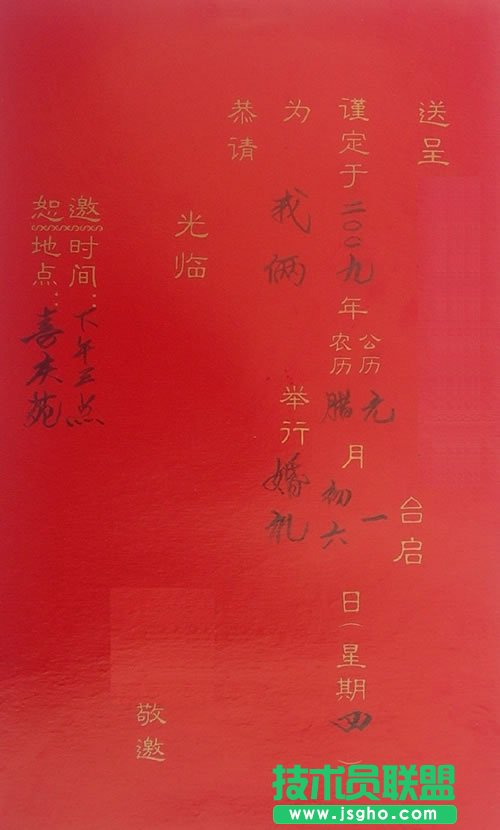 送呈 台启
谨定于二〇〇九年公历元月一日（星期四）
农历腊 初六
为我俩举行婚礼
恭请
光临
敬邀
邀时间：下午三点
恕地点：喜庆苑
技术员联盟
www.jsgho.com